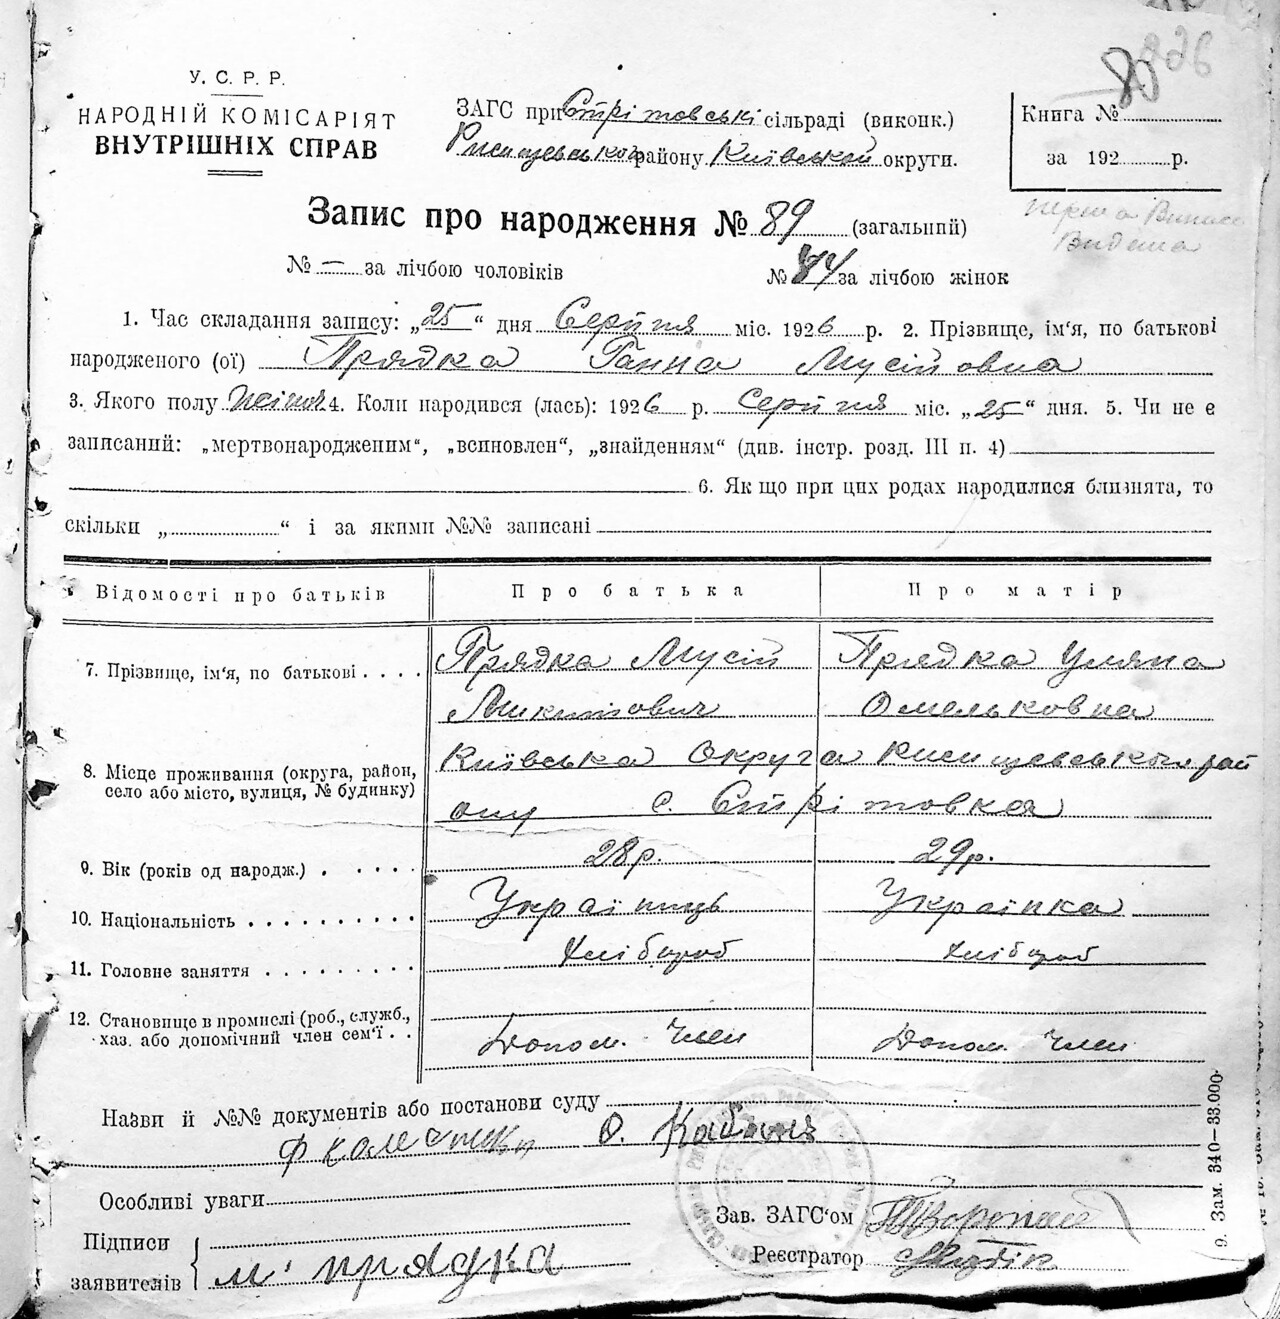 У. С. Р. Р.
НАРОДНІЙ КОМІСАРІЯТ
ВНУТРІШНІХ СПРАВ
ЗАГС при Стрітовські сільраді (виконк.)
району Київської округи.
Книга № 80
за 192 р.
226
перша Виписка
Видана
Запис про народження № 89 (загальний)
№ — за лічбою чоловіків
№ 44 за лічбою жінок
1. Час складання запису: „25“ дня Серпня міс. 1926 р. 2. Прізвище, ім'я, по батькові
народженого (ої) Прядка Ганна Мусійовна
3. Якого полу Жіноч 4. Коли народився (лась): 1926 р. Серпня міс. „25“ дня. 5. Чи не є
записаний: „мертвонародженим“, „всиновлен“, „знайденням“ (див. інстр. розд. III п. 4)
6. Як що при цих родах народилися близнята, то
скільки „ “ і за якими №№ записані
Відомості про батьків
Про батька
Про матір
7. Прізвище, ім'я, по батькові
Прядка Мусій
Микитович
Прядка Уляна
Омельковна
8. Місце проживання (округа, район,
село або місто, вулиця, № будинку)
Київська Округа рай
ону с. Стрітовка
9. Вік (років од народж.)
28р.
29р.
10. Національність
Українець
Українка
11. Головне заняття
Хлібороб
Хлібороб
12. Становище в промислі (роб., служб.,
хаз. або допомічний член сем'ї
Допом. Член
Допом. Член
Назви й №№ документів або постанови суду
О.
Особливі уваги
Підписи
заявителів
М. Прядка
Зав. ЗАГС'ом
Реєстратор
9. Зам. 340—33.000.